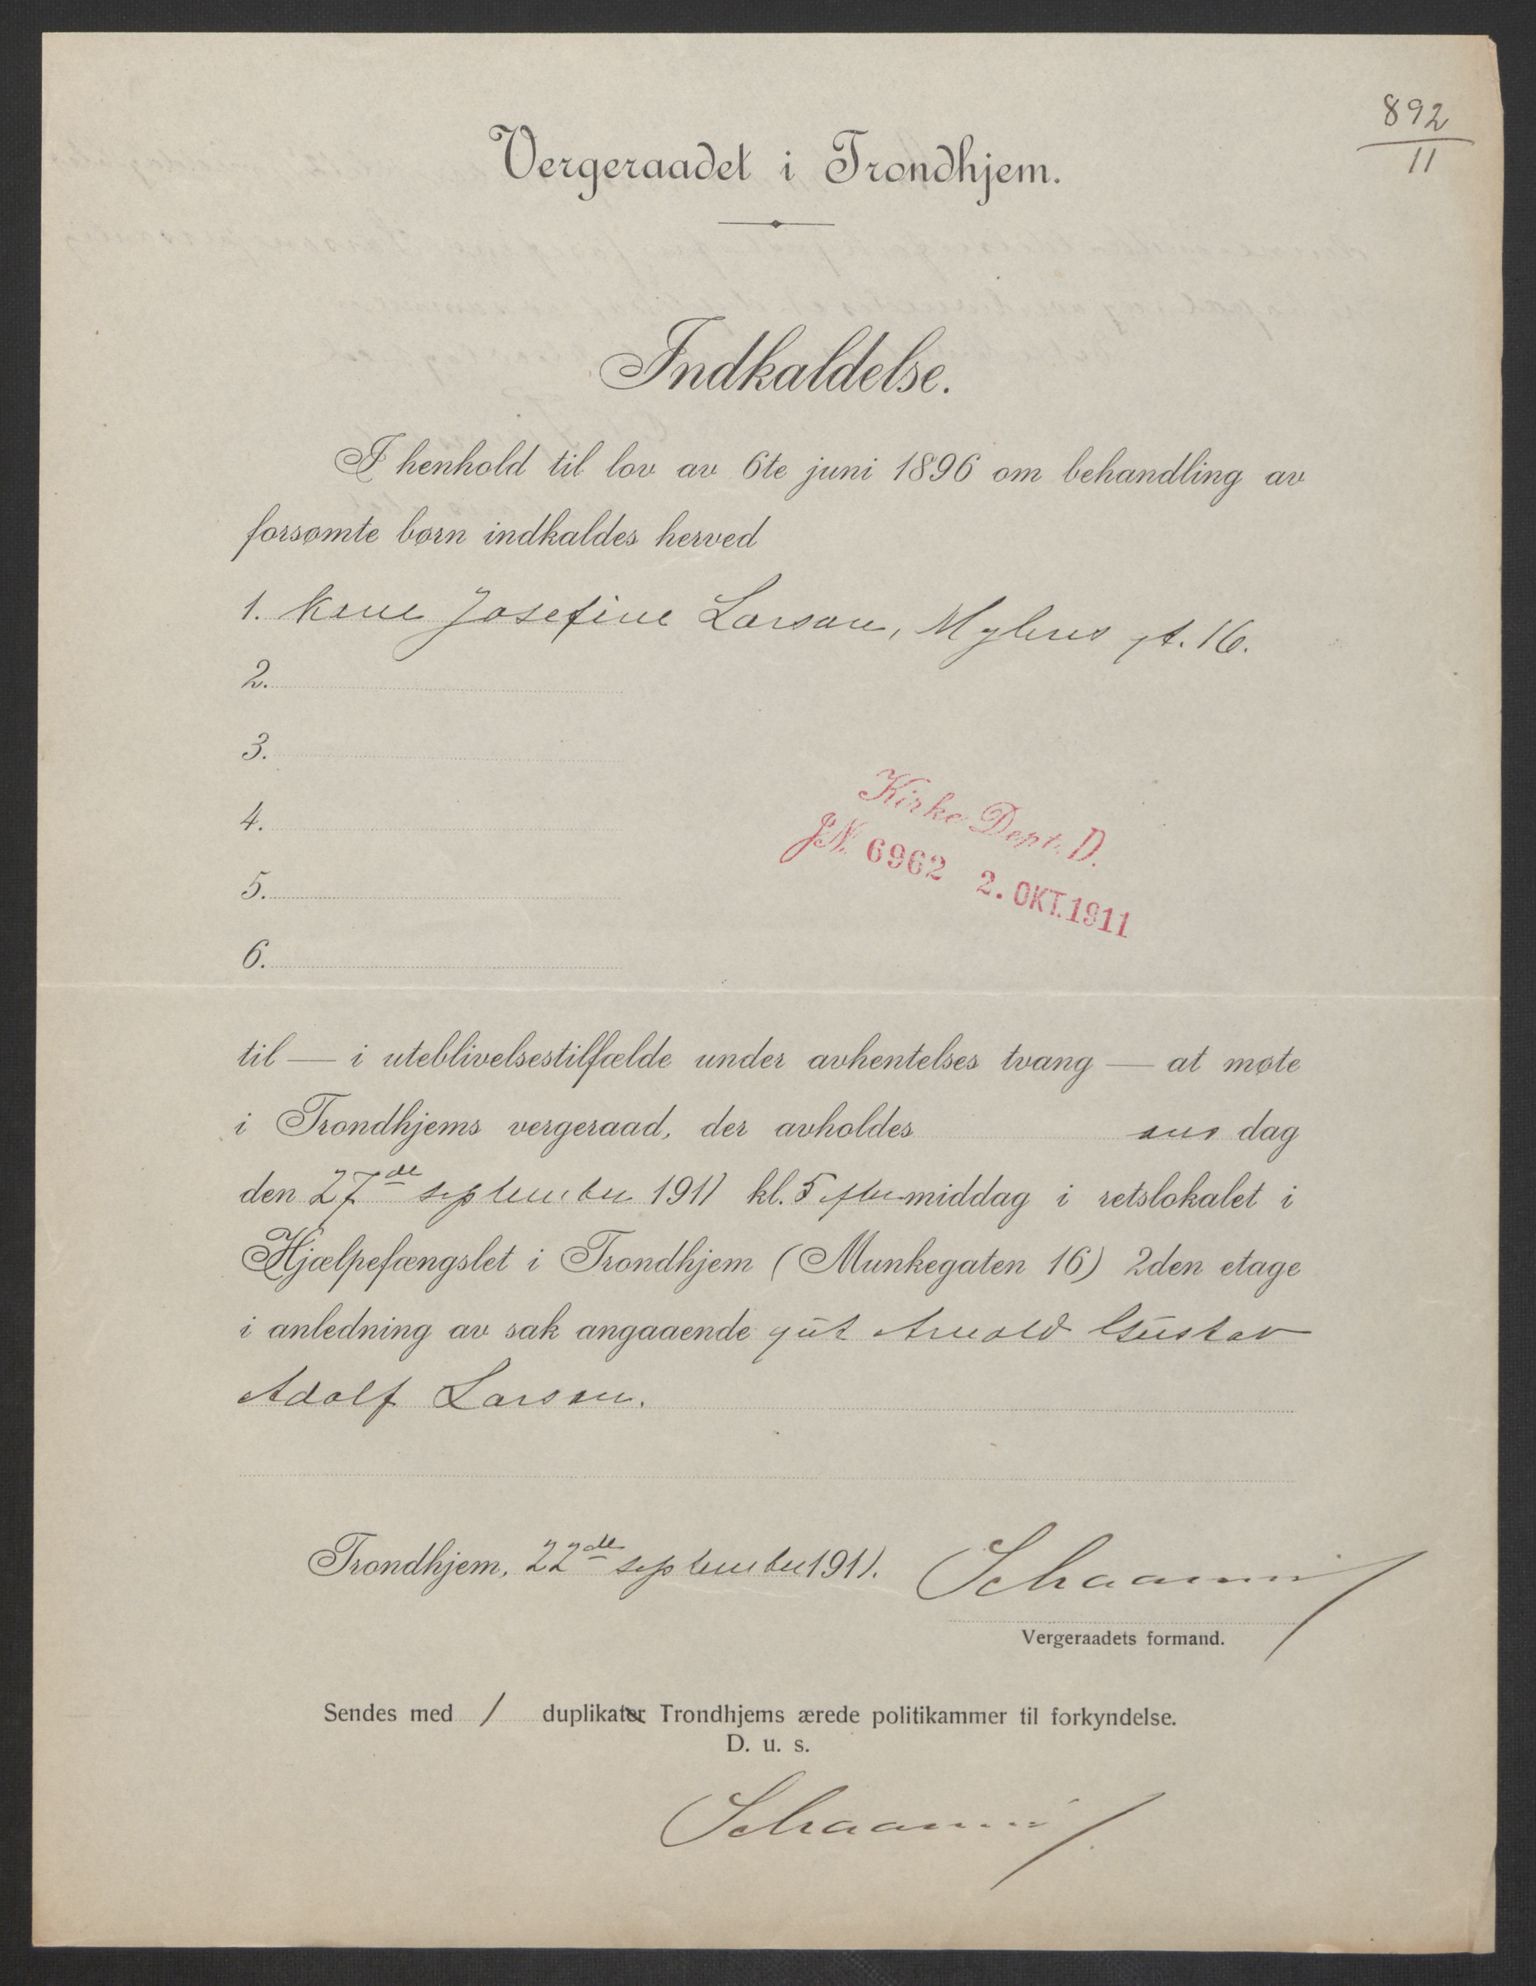 892
11
Vergeraadet i Trondhjem.
Indkaldelse.
I henhold til lov av 6te juni 1896 om behandling av
forsømte børn indkaldes herved
1. Kone Josefine Larsen, Mylnes gt. 16.
2.
3.
4.
5.
6.
Kirke Dept. D.
JN. 6962 2. OKT. 1911
til — i uteblivelsestilfælde under avhentelses tvang — at møte
i Trondhjems vergeraad, der avholdes ons dag
den 27de september 1911 kl. 5 eftermiddag i retslokalet i
Hjælpefængslet i Trondhjem (Munkegaten 16) 2den etage
i anledning av sak angaaende gut Arnold Gustav
Adolf Larsen.
Trondhjem, 22de september 1911.
Schaanni
Vergeraadets formand.
Sendes med 1 duplikater Trondhjems ærede politikammer til forkyndelse.
D. u. s.
Schaanni